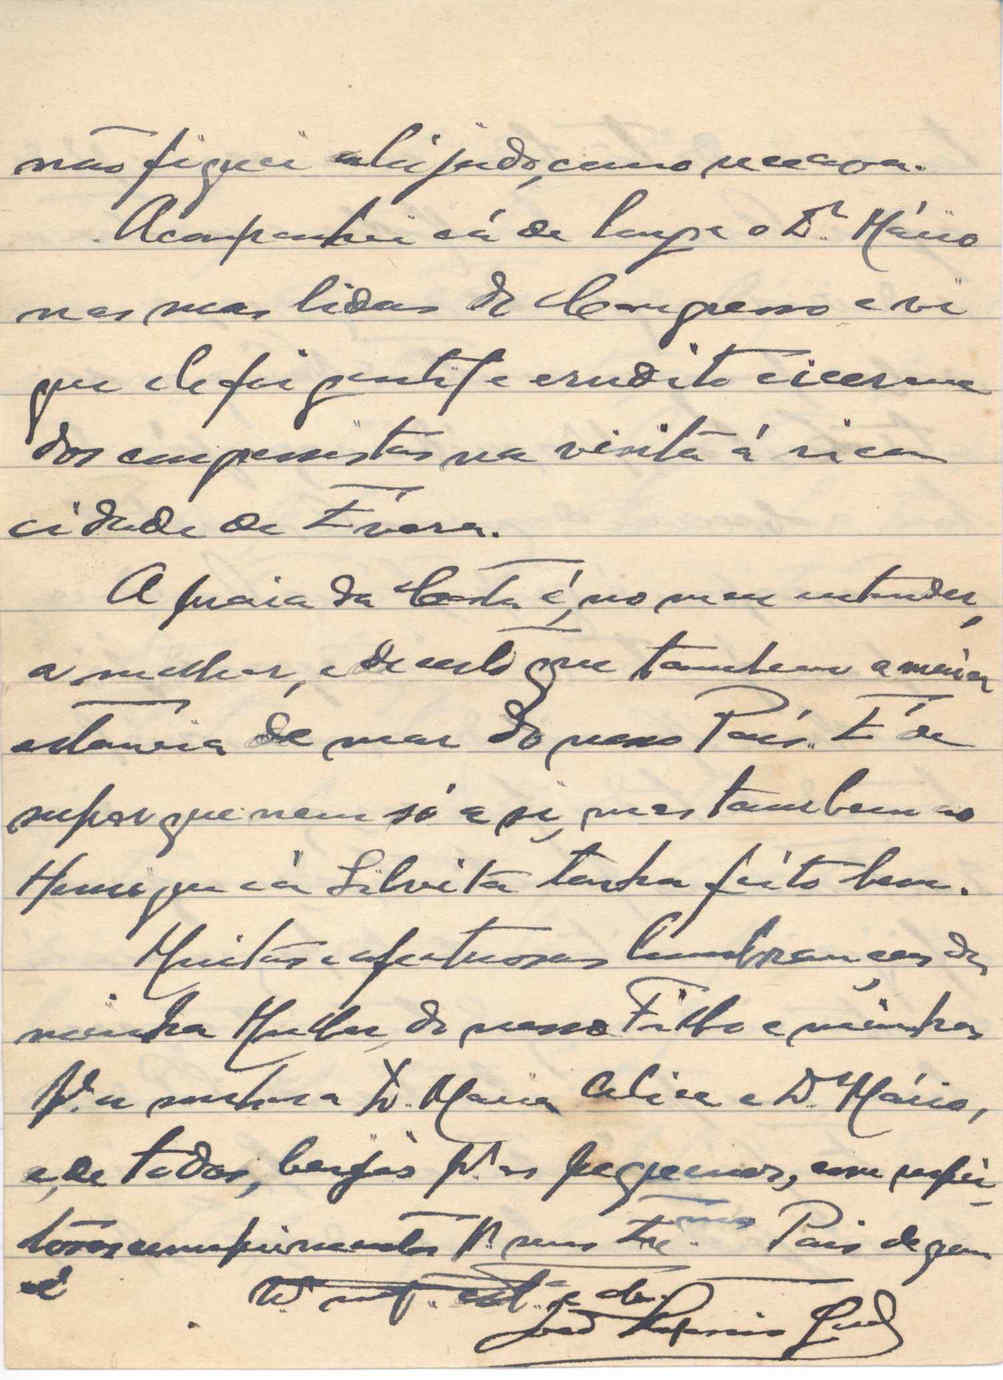 não fiquei aleijado, como receava.
Acompanhei cá de longe o Dr. Mário
nas suas lidas do Congresso e vi
que ele foi gentil e erudito cicerone
dos congressistas na visita á rica
cidade de Évora.
A praia da Costa é, no meu entender,
a melhor, e decerto que tambem a maior
estancia de mar do nosso País. É de
supor que nem só a si, mas tambem ao
Henrique e á Silvita tenha feito bem.
Muitas e afectuosas lembranças de
minha Mulher, do nosso Filho e minhas
pª a senhora D. Maria Alice e Dr. Mário,
e, de todos, beijos pª os pequenos, com respei-
tosos cumprimentos pª seus Exmos Pais de quem
é